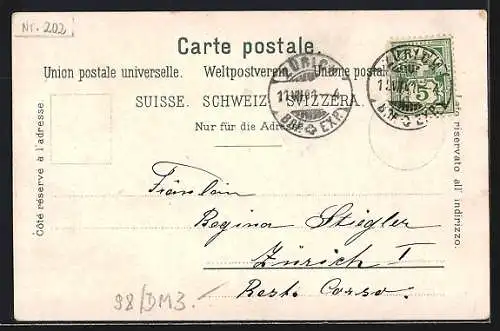 Nr. 202
Carte postale.
Union postale universelle. Weltpostverein. Unione postale
SUISSE. SCHWEIZ. SVIZZERA.
Nur für die Adresse
Côté réservé à l'adresse.
Lato riservato all' indirizzo.
ZÜRICH
BRF. EXP.
ZÜRICH
BRF. EXP.
5
Fräulein
Regina Stigler
Zürich I
Rest. Corso.
98/DM3.